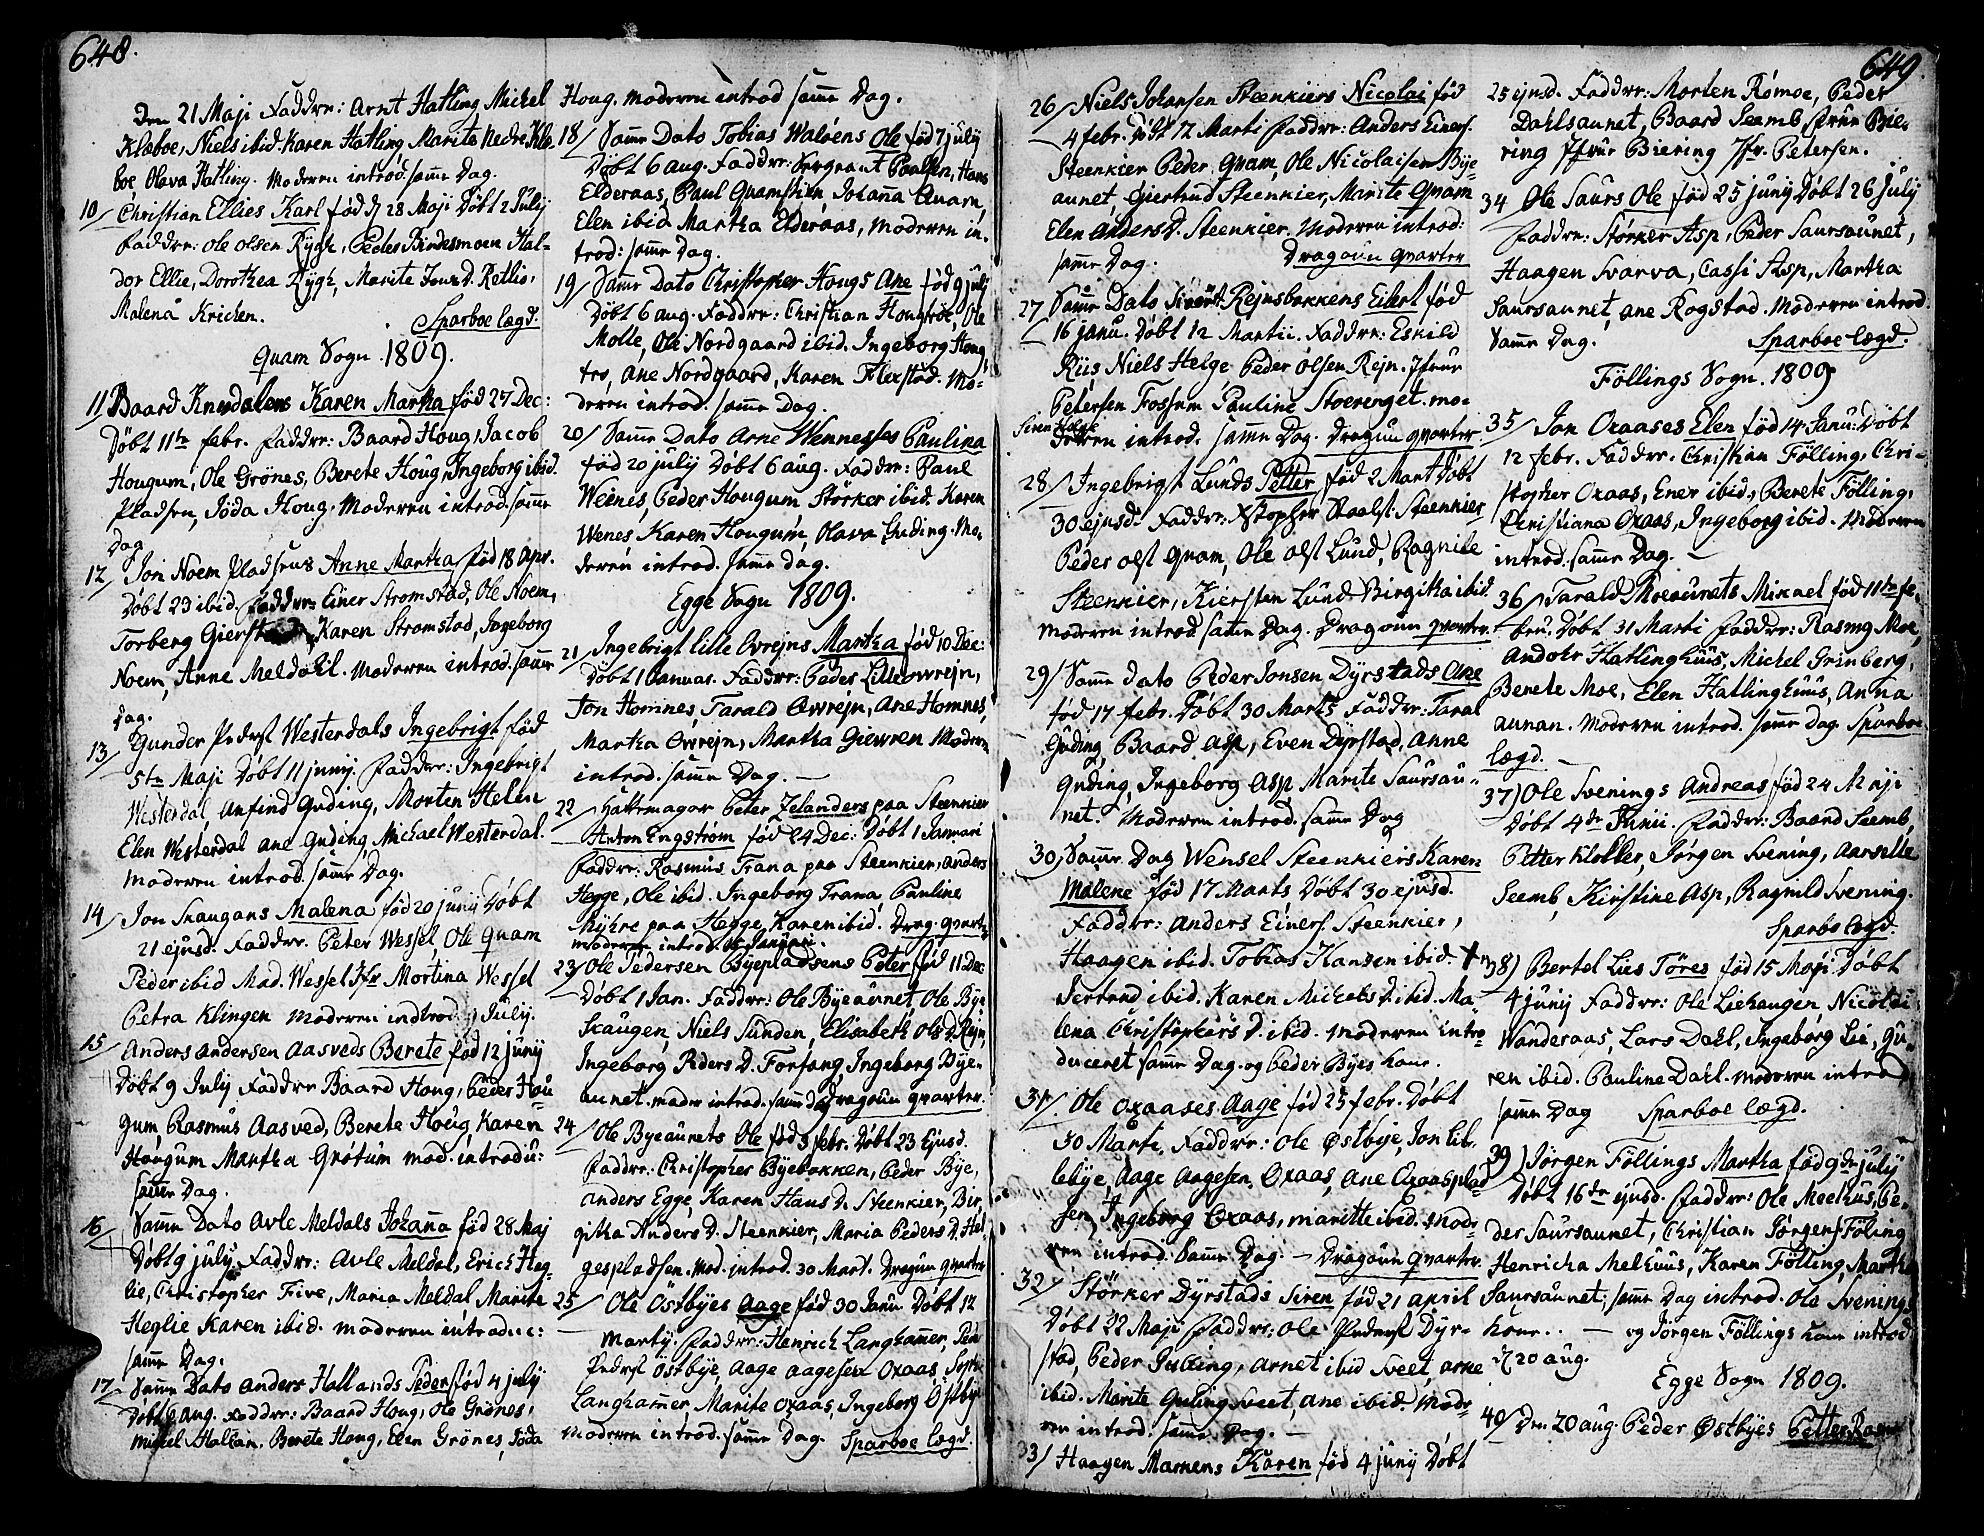 648.
Den 21 Maji Faddrr: Arnt Hatling Michel
Klæboe, Niels ibid. Karen Hatling Marite Nedre Klæ-
boe, Olava Hatling. Moderen introd. samme Dag.
10/ Christian Ellies Karl fød d 28 Maji Døbt 2 July
Faddrr: Ole Olsen Rygh, Peder Bindesmoen Hal-
dor Ellie, Dorothea Rygh, Marite Jons D. Retlio,
Malena Krichen.
Sparboe lægd.
Quam Sogn. 1809.
11/ Baard Knudalens Karen Martha fød 27 Dec:
Døbt 11te febr. Faddrr: Baard Houg, Jacob
Hougum, Ole Grönes, Berete Houg, Ingeborg ibid.
Pladsen, Jöda Houg. Moderen introd. samme
Dag
12/ Jon Noem Pladsens Anne Martha fød 18 Apr.
Døbt 23 ibid. Faddrr: Einer Stromstad, Ole Noem,
Torberg Karen Stromstad, Ingeborg
Noem, Anne Meldahl. Moderen introd. samme
Dag.
13/ Gunder Peders. Westerdals Ingebrigt fød
5te Maji Døbt 11 juny. Faddrr: Ingebrigt
Westerdal Anfind Guding, Morten Helen
Elen Westerdal Ane Guding, Michael Westerdal.
Moderen introd. samme Dag.
14/ Jon Skaugans Malena fød 20 juny Døbt
21 ejusd. Faddrr. Peter Wessel, Ole Quam
Peder ibid Mad. Wessel Jfr Mortina Wessel
Petra Klingen Moderen indtrod. 9 July.
15/ Anders Andersen Aasveds Berete fød 12 juny
Døbt 9 July Faddrr Baard Houg, Peder Hou-
gum, Rasmus Aasved, Berete Houg, Karen
Hougum Martha Grötum mod. introdu:
samme Dag.
16/ Samme Dato Avle Meldals Johanna fød 28 Maj
Døbt 9 july Faddrr: Avle Meldal, Erich Heg-
lie, Christopher Five, Maria Meldal Marite
Heglie Karen ibid. Moderen introduc:
samme Dag.
17/ Samme Dato Anders Hallands Peder fød 4 july
Døbt 6 aug. Faddrr: Baard Houg, Ole Grönes,
Mikel Haltan, Berete Houg, Elen Grönes, Jöda
Houg. Moderen introd samme Dag.
18/ Samme Dato Tobias Waløens Ole fød 7 july
Døbt 6 aug. Faddrr: Sergeant Poulsen, Hans
Elderaas, Paul Quamstien Johanna Quam,
Elen ibid Martha Elderaas, Moderen in-
trod: samme Dag.
19/ Samme Dato Christopher Hougs Ane fød 9 july
Døbt 6 aug. Faddrr: Christian Hougtröe, Ole
Molle, Ole Nordgaard ibid. Ingeborg Houg,
tro, Ane Nordgaard, Karen Flexstad. Mo-
deren introd. samme Dag.
20/ Samme Dato Arne Wennesses Paulina
fød 20 july Døbt 6 aug. Faddrr: Paul
Weenes, Peder Hougum Störker ibid. Karen
Wenes Karen Hougum, Olava Guding. Mo-
deren introd. samme dag.
Egge Sogn 1809.
21/ Ingebrigt lille Owrejns Martha fød 10 Dec:
Døbt 1 Januar. Faddrr: Peder Lilleowrejn,
Jon Homnes, Tarald Owrejn, Ane Homnes,
Martha Owrejn, Martha Giewren Moderen
introd. samme Dag. —
22/ Hattemager Peter Zelanders paa Steenkier
Anton Engström fød 24 Dec. Døbt 1 Januari
Faddrr: Rasmus Trana paa Steenkier, Anders
Hegge, Ole ibid. Ingeborg Trana, Pauline
Myhre paa Hegge, Karen ibid. Drag. quarter
moderen introd. Januari.
23/ Ole Pedersen Byepladsens Peter fød 11 Dec
Døbt 1 Jan. Faddrr: Ole Byeaunet, Ole Bye
Skaugen, Niels Sunden, Elisabeth Ols D. Rejn,
Ingeborg Peders D. Forfang Ingeborg Bye-
aunet. mader introd. samme Dag Dragoun quarter.
24/ Ole Byeaunets Ole fød 3 febr. Døbt 23 Ejusd.
Faddrr: Christopher Byebakken, Peder Bye,
Anders Egge, Karen Hans D. Steenkier, Bir-
githa Anders D. Steenkier, Maria Peders D. Hel-
gespladsen. Mod. introd. 30 Mart. Dragun quarter
25/ Ole Östbyes Aage fød 30 Janu Døbt 12
Martij Faddrr: Henrich Langhammer, Peder
Peders. Östbye, Aage Aagesen Oxaas,
Langhammer, Marite Oxaas, Ingeborg Östbye
Moderen introd. samme Dag. Sparboe lægd.
649.
26/ Niels Johansen Steenkiers Nicolai fød
4 febr. Døbt 12 Marti Faddrr: Anders Einers.
Steenkier Peder Quam, Ole Nicolaisen Bye-
aunet, Giertrud Steenkier, Marite Quam
Elen Anders D. Steenkier. Moderen introd:
samme Dag. Dragoun quarter
27/ Samme Dato Sivert Rejnsbakkens Eilert fød
16 janu. Døbt 12 Martii. Faddrr: Eskild
Riis, Niels Helge, Peder Olsen Rejn, Jfrur
Petersen Fossum Pauline Stoerenget. mo-
deren introd. samme Dag. Dragun quarter.
28/ Ingebrigt Lunds Petter fød 2 Mart Døbt
30 ejusd. Faddrr. Xstopher Staals. Steenkier
Peder Ols. Quam, Ole Ols. Lund, Ragnile
Steenkier, Kiersten Lund Birgitha ibid.
Moderen introd. samme Dag. Dragoun quarter.
29/ Samme dato Peder Jonsen Dyrstads Ane
fød 17 febr. Døbt 30 Marts Faddrr: Taral
Guding, Baard Asp, Even Dyrstad, Anne
Guding, Ingeborg Asp Marite Saursau-
net. Moderen introd. samme Dag
30/ Samme Dag Wensel Steenkiers Karen
Malene fød 17 Marts, Døbt 30 ejusd.
Faddrr: Anders Einers. Steenkier,
Haagen ibid. Tobias Hansen ibid.
Jertrud ibid. Karen Michels D. ibid. Ma-
lena Christophers D. ibid. Moderen intro-
duceret samme Dag. og Peder Byes kone.
31/ Ole Oxaases Aage fød 25 febr. Døbt
30 Marti. Faddrr: Ole Østbye, Jon Lil-
lebye, Aage Aagesen, Oxaas, Ane Oxaasplad-
sen, Ingeborg Oxaas, maritte ibid. Mode-
ren introd. Samme Dag. — Dragoun quarter.
32/ Störker Dyrstads Siren fød 21 april
Døbt 22 Maji Faddrr: Ole Peders. Dyr-
stad, Peder Julling, Arnet ibid Sveet, Arne
ibid. Marite Guling Sveet, Ane ibid. Mode-
ren introd. samme Dag. —
33/ Haagen Mamens Karen fød 4 juny Døbt
25 ejusd. Faddrr: Morten Römoe, Peder
Dahlsaunet, Baard Seemb, frur Bie-
ring Jfrur Biering Jfr. Petersen.
34 Ole Saurs Ole fød 25 juny Døbt 26 july
Faddrr: Störker Asp, Peder Saursaunet,
Haagen Svarva, Cassi Asp, Martha
Saursaunet, Ane Rogstad. Moderen introd.
Samme Dag. Sparboe lægd.
Föllings Sogn. 1809
35/ Jon Oxaases Elen fød 14 Janu: Døbt
12 febr. Faddrr. Christian Fölling, Chri-
stopher Oxaas, Ener ibid, Berete Fölling,
Christiana Oxaas, Ingeborg ibid. Moderen
introd. samme Dag. —
36/ Tarald Moeaunets Mikael fød 11te fe-
bru. Døbt 31 Marti Faddrr: Rasmg Moe,
Andokr Hatlinghuus, Michel Grinberg,
Berete Moe, Elen Hatlinghuus, Anna
aunan. Moderen introd. samme Dag. Sparboe
lægd. —
37) Ole Svenings Andreas fød 24 Maji
Døbt 4de Junii. Faddrr: Baard Seemb,
Petter Klokker, Jörgen Svening, Aarselle
Seemb, Kirstine Asp, Ragnild Svening.
Sparbo lægd.
38) Bertel Lies Töres fød 15 Maji Døbt
4 juny Faddrr: Ole Liehaugen, Nicolai
Wanderaas, Lars Dahl, Ingeborg Lie, Gu-
ren ibid. Pauline Dahl. Moderen introd.
samme Dag Sparboe lægd.
39) Jörgen Föllings Martha fød 9de july
Døbt 16de ejusd. Faddrr: Ole Meelhus, Pe-
der Saursaunet, Christian Jörgens. Föling
Henricha Melhuus, Karen Fölling, Martha
Saursaunet; samme Dag introd. Ole Svenings
kone.. — og Jörgen Föllings kone introd.
d. 20 aug.
Egge Sogn 1809.
40/ Den 20 aug. Peder Østbyes Petter